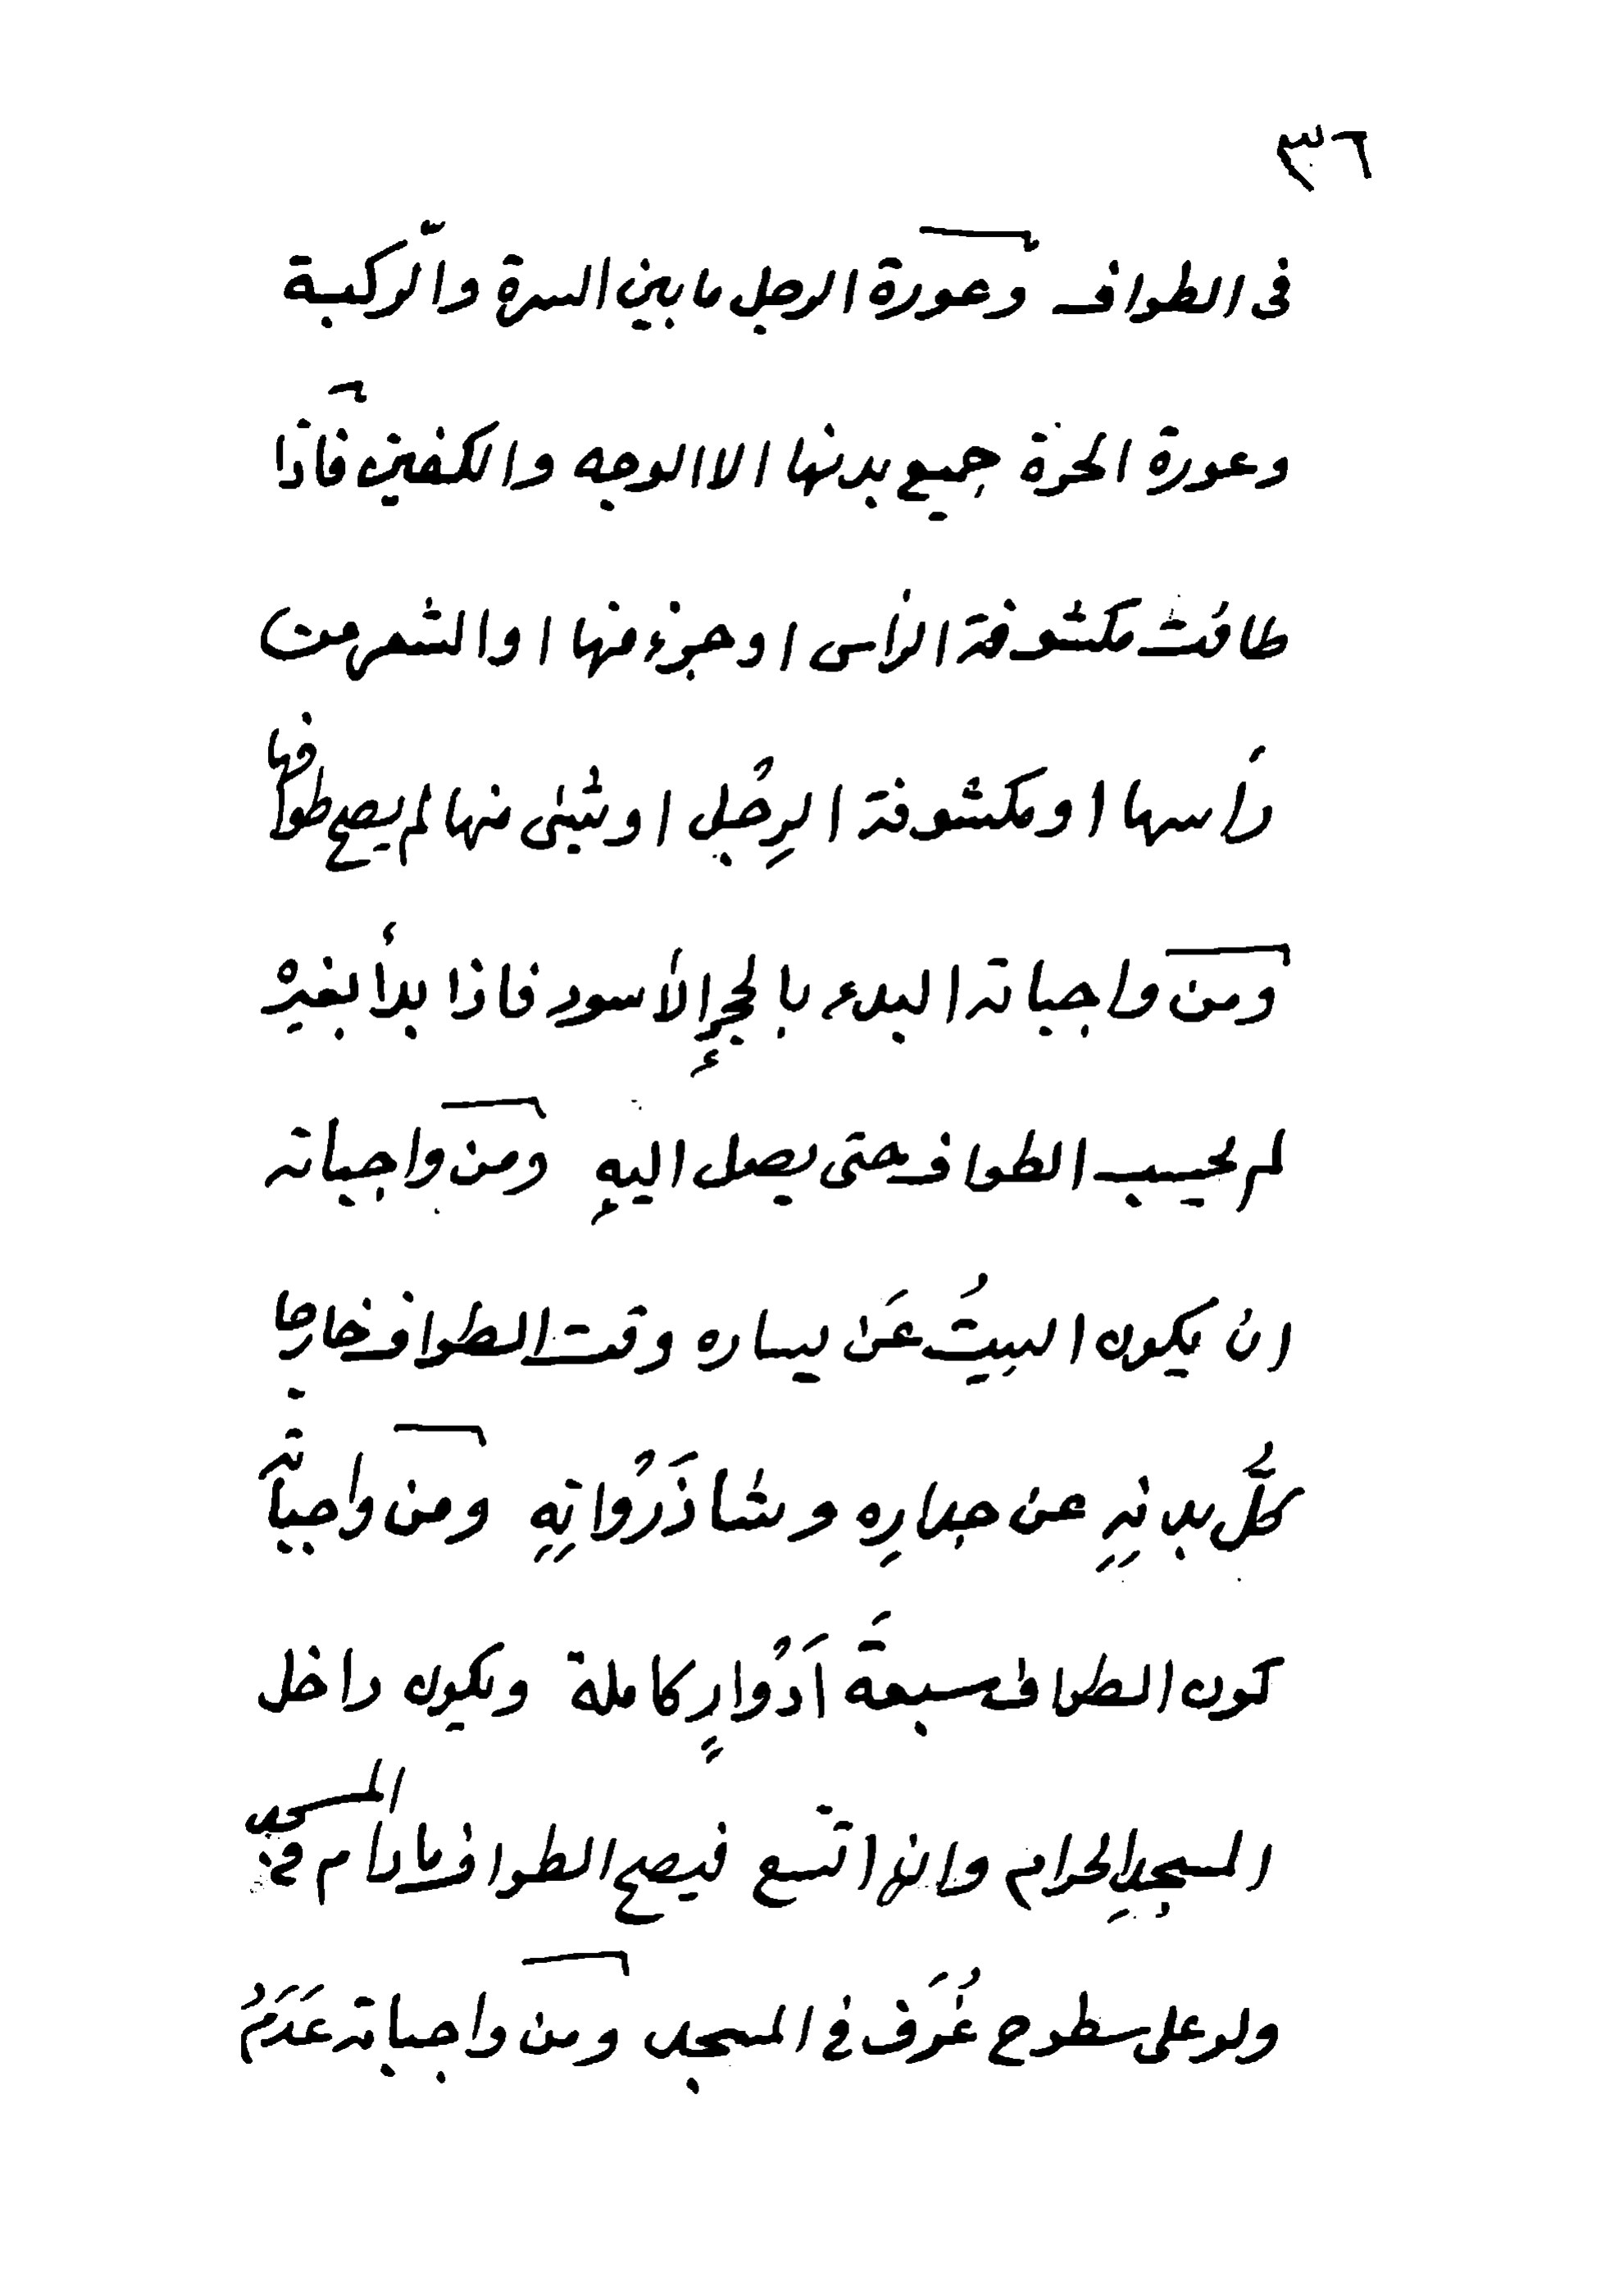 ٣٦
فى الطواف وعورة الرجل ما بين السرة والرّكبة
وعورة الحرّة جميع بدنها الا الوجه والكفين فاذا
طافت مكشوفة الرأس او جزء منها او الشعر من
رأسها او مكشوفة الرِجْل او شيئى منها لم يصح طوافها
ومن واجباته البدء بالحجرِ الأسود فاذا بدأ بغيره
لم يحسب الطواف حتى يصل اليهِ ومن واجباته
ان يكون البيتُ عَن يساره وقت الطواف خارجا
كلُّ بدنهِ عن جدارِه وشاذَرْوانِهِ ومن واجباته
كون الطواف سبعةَ اَدْوارٍ كاملة ويكون داخل
المسجدِ الحرام وان اتسع فيصح الطواف مادام فى المسجد
ولو على سطوح غُرَف فى المسجد ومن واجباته عَدَمُ